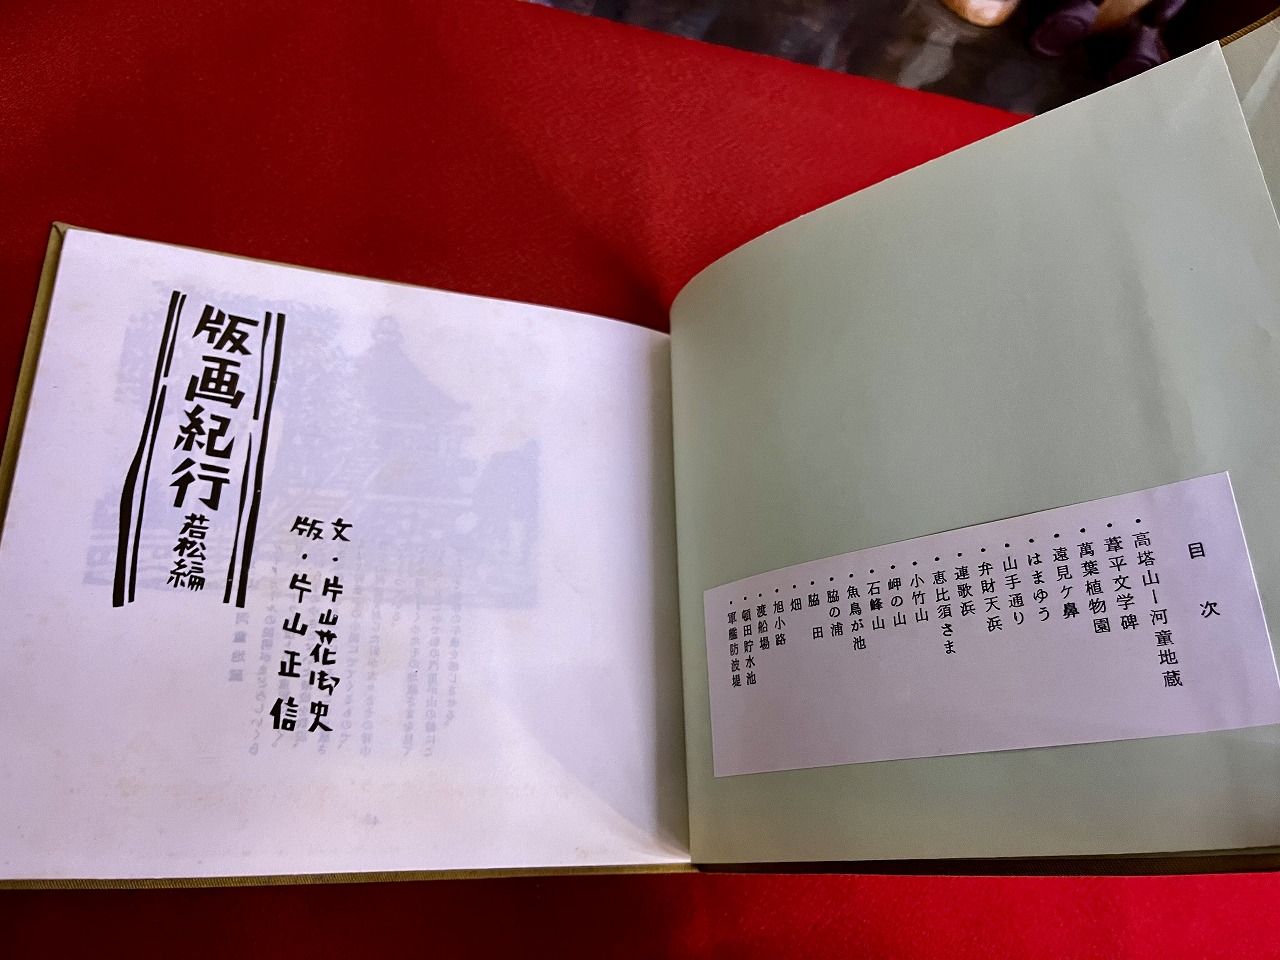 目 次
・高塔山ー河童地蔵
・葦平文学碑
・萬葉植物園
・遠見ケ鼻
・はまゆう
・山手通り
・弁財天浜
・連歌浜
・恵比須さま
・小竹山
・岬の山
・石峰山
・魚鳥が池
・脇の浦
・脇 田
・畑
・旭小路
・渡船場
・頓田貯水池
・軍艦防波堤
文・片山花御史
版・片山正信
版画紀行 若松編